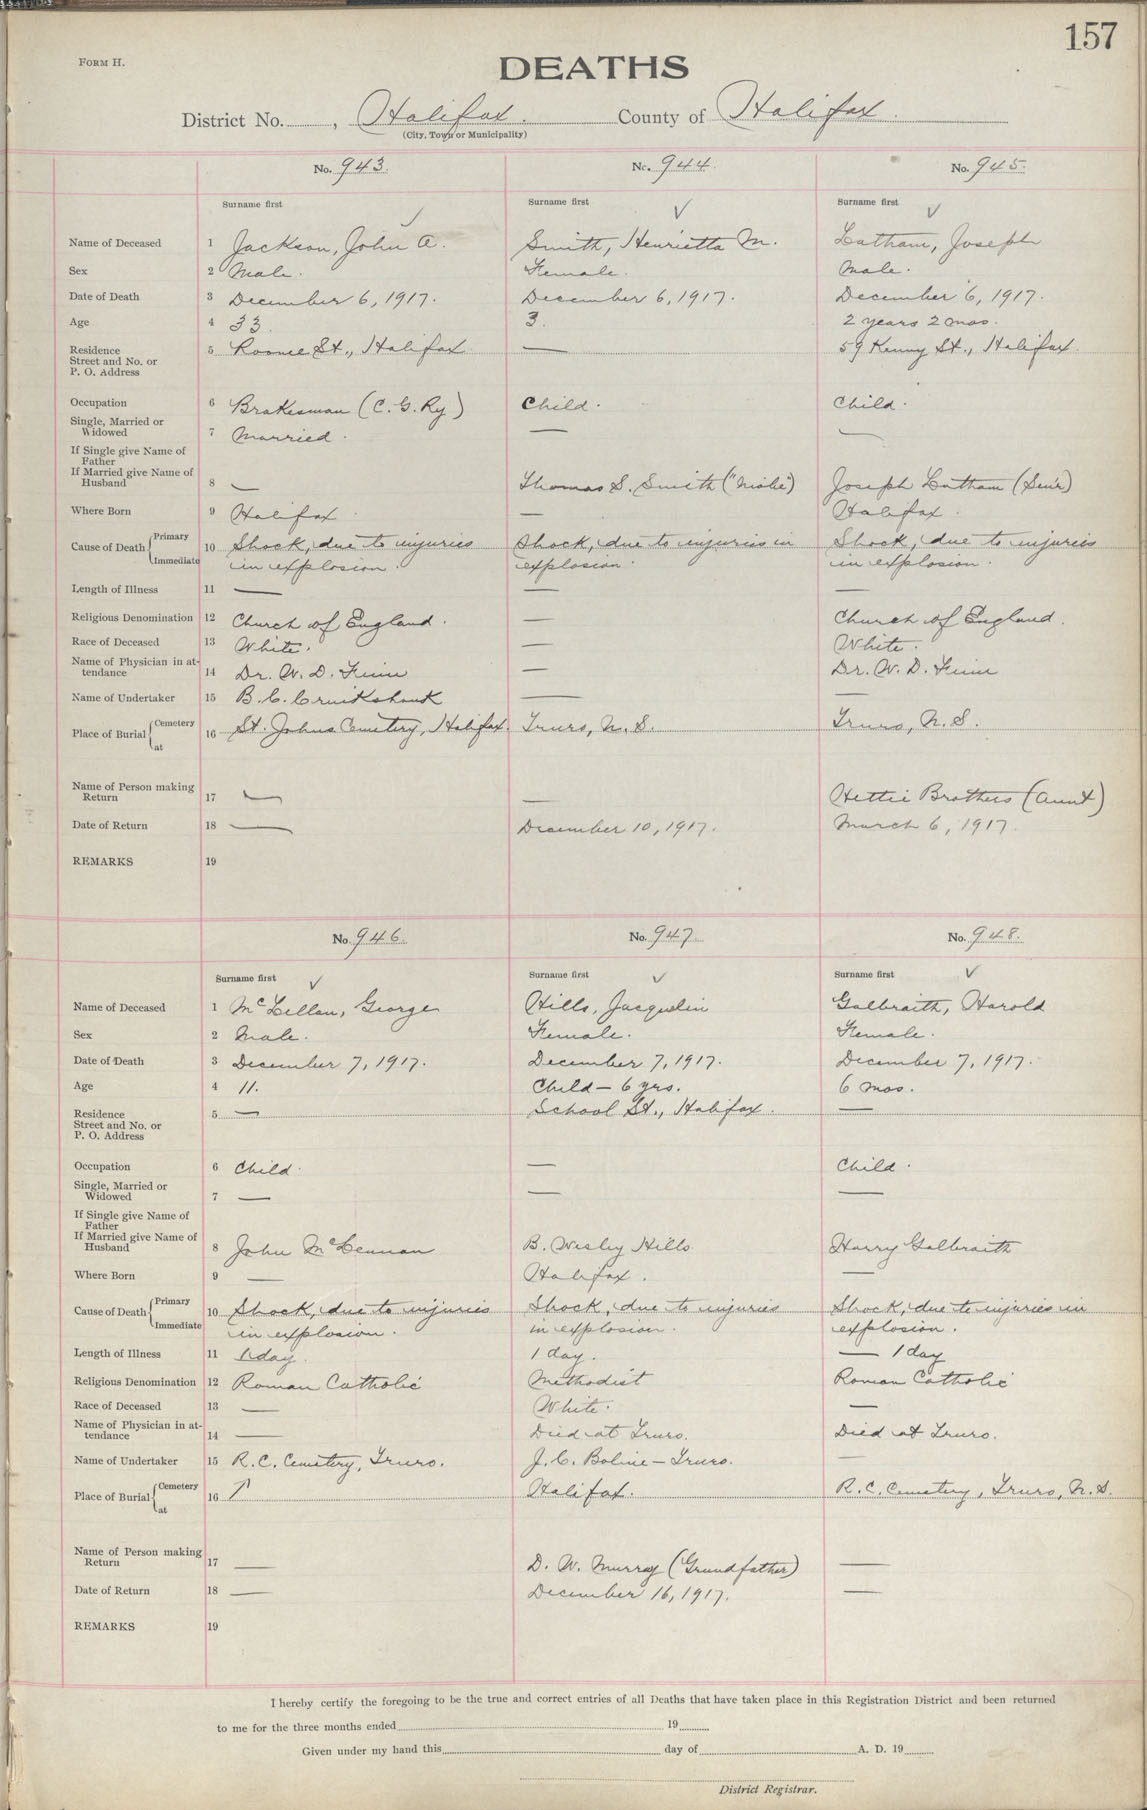 157
FORM H.
DEATHS
District No. , Halifax. County of Halifax.
(City, Town or Municipality)
No. 943.
Surname first
Name of Deceased 1 Jackson, John A.
Sex 2 Male.
Date of Death 3 December 6, 1917.
Age 4 33.
Residence 5 St., Halifax
Street and No. or
P. O. Address
Occupation 6 Brakesman (C. G. Ry)
Single, Married or
Widowed 7 Married.
If Single give Name of
Father
If Married give Name of
Husband 8 —
Where Born 9 Halifax.
Cause of Death Primary Immediate 10 Shock, due to injuries
in explosion.
Length of Illness 11 —
Religious Denomination 12 Church of England.
Race of Deceased 13 White.
Name of Physician in at-
tendance 14 Dr. W. D. Finn
Name of Undertaker 15 B. C. Cruikshank
Place of Burial Cemetery at 16 St. Johns Cemetery, Halifax.
Name of Person making
Return 17 —
Date of Return 18 —
REMARKS 19
No. 944
Surname first
Smith, Henrietta M.
Female.
December 6, 1917.
3.
—
Child.
—
Thomas S. Smith
—
Shock, due to injuries in
explosion.
—
—
—
—
—
Truro, N. S.
—
December 10, 1917.
No. 945.
Surname first
Latham, Joseph
Male.
December 6, 1917.
2 years 2 mos.
59 Kenny St., Halifax.
Child.
—
Joseph Latham (Senr)
Halifax.
Shock, due to injuries
in explosion.
—
Church of England.
White.
Dr. W. D. Finn
—
Truro, N. S.
Hettie Brothers (Aunt)
March 6, 1917.
No. 946.
Surname first
Name of Deceased 1 McLellan, George
Sex 2 Male.
Date of Death 3 December 7, 1917.
Age 4 11.
Residence 5 —
Street and No. or
P. O. Address
Occupation 6 Child.
Single, Married or
Widowed 7 —
If Single give Name of
Father
If Married give Name of
Husband 8 John McLennan
Where Born 9 —
Cause of Death Primary Immediate 10 Shock, due to injuries
in explosion.
Length of Illness 11 1 day.
Religious Denomination 12 Roman Catholic
Race of Deceased 13 —
Name of Physician in at-
tendance 14 —
Name of Undertaker 15 R. C. Cemetery, Truro.
Place of Burial Cemetery at 16
Name of Person making
Return 17 —
Date of Return 18 —
REMARKS 19
No. 947.
Surname first
Hills, Jacquelin
Female.
December 7, 1917.
Child — 6 yrs.
School St., Halifax.
—
—
B. Wesley Hills
Halifax.
Shock, due to injuries
in explosion.
1 day.
Methodist
White.
Died at Truro.
J. C. — Truro.
Halifax.
D. W. Murray (Grandfather)
December 16, 1917.
No. 948.
Surname first
Galbraith, Harold
Female.
December 7, 1917.
6 mos.
—
Child.
—
Harry Galbraith
—
Shock, due to injuries in
explosion.
— 1 day
Roman Catholic
—
Died at Truro.
—
R. C. Cemetery, Truro, N. S.
—
—
I hereby certify the foregoing to be the true and correct entries of all Deaths that have taken place in this Registration District and been returned
to me for the three months ended 19
Given under my hand this day of A. D. 19
District Registrar.